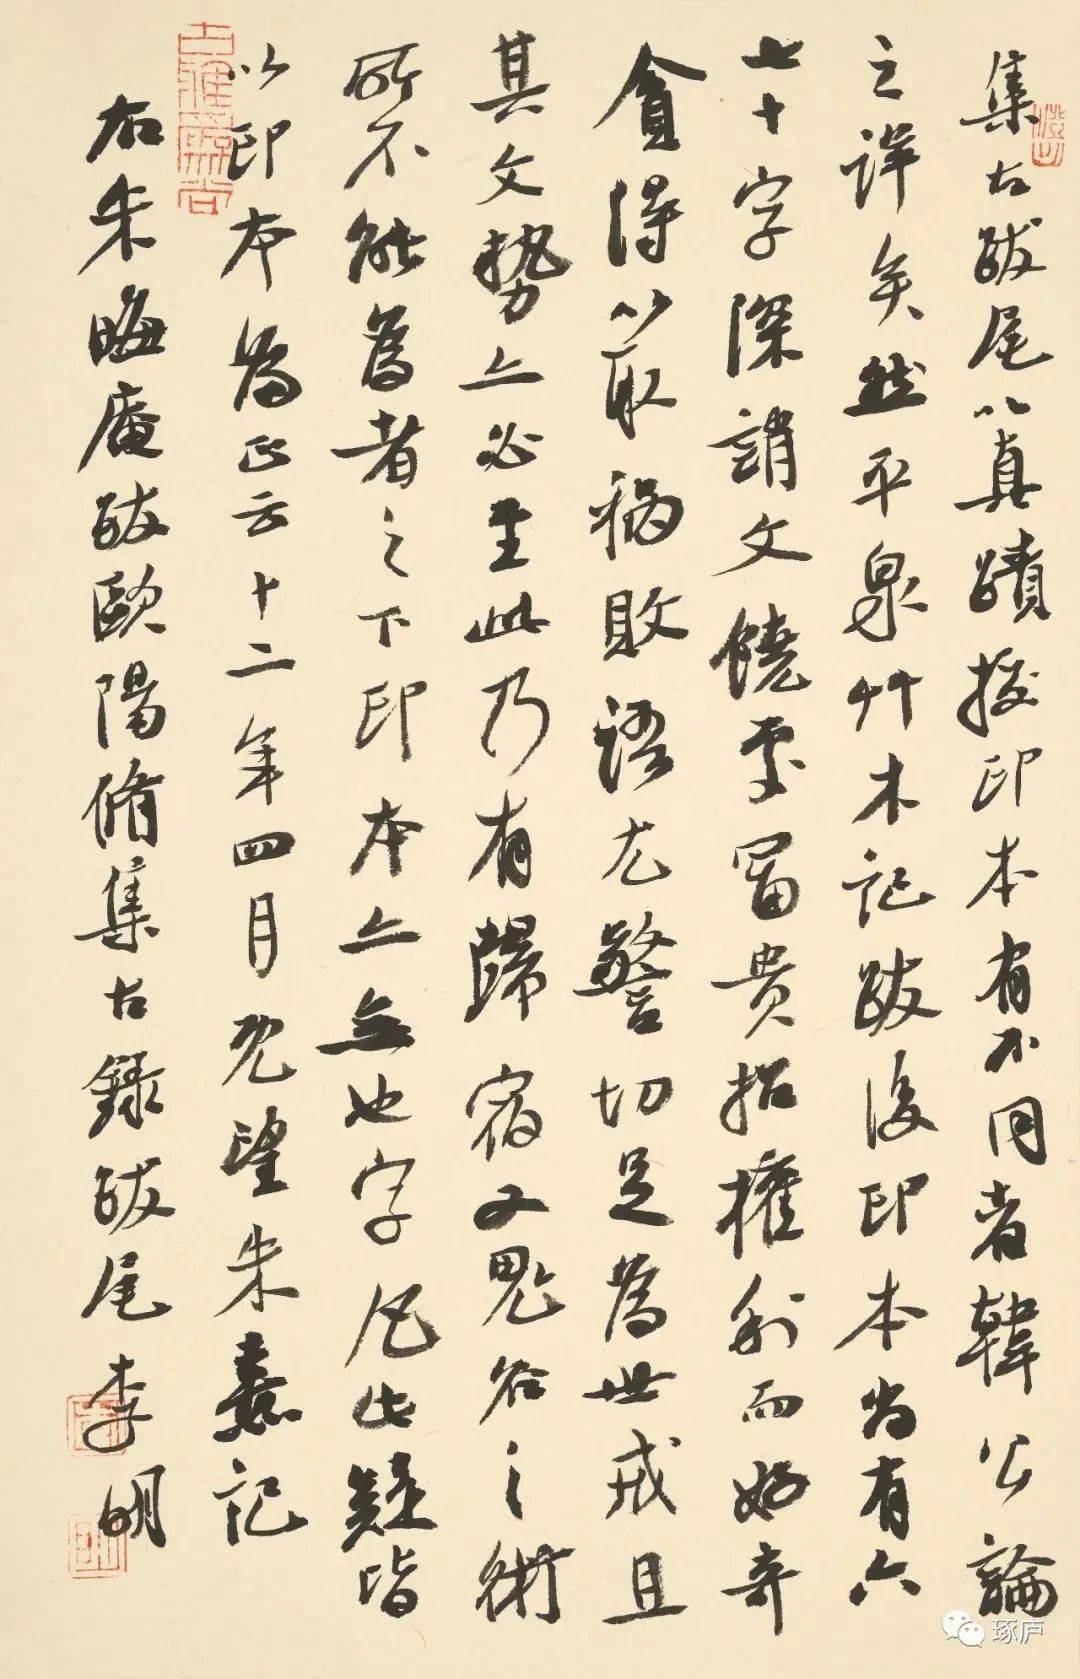 集古跋尾以真蹟挍印本有不同者韓公論
之詳矣然平泉艸木記跋後印本尚有六
七十字深誚文饒處富貴招權利而好奇
貪得以取禍敗語尤警切足爲世戒且
其文勢亦必至此乃有歸宿又鬼谷之術
所不能爲者之下印本亦無也字凡此疑皆
以印本爲正云十二年四月既望朱熹記
右朱晦庵跋歐陽脩集古錄跋尾李明
琢庐